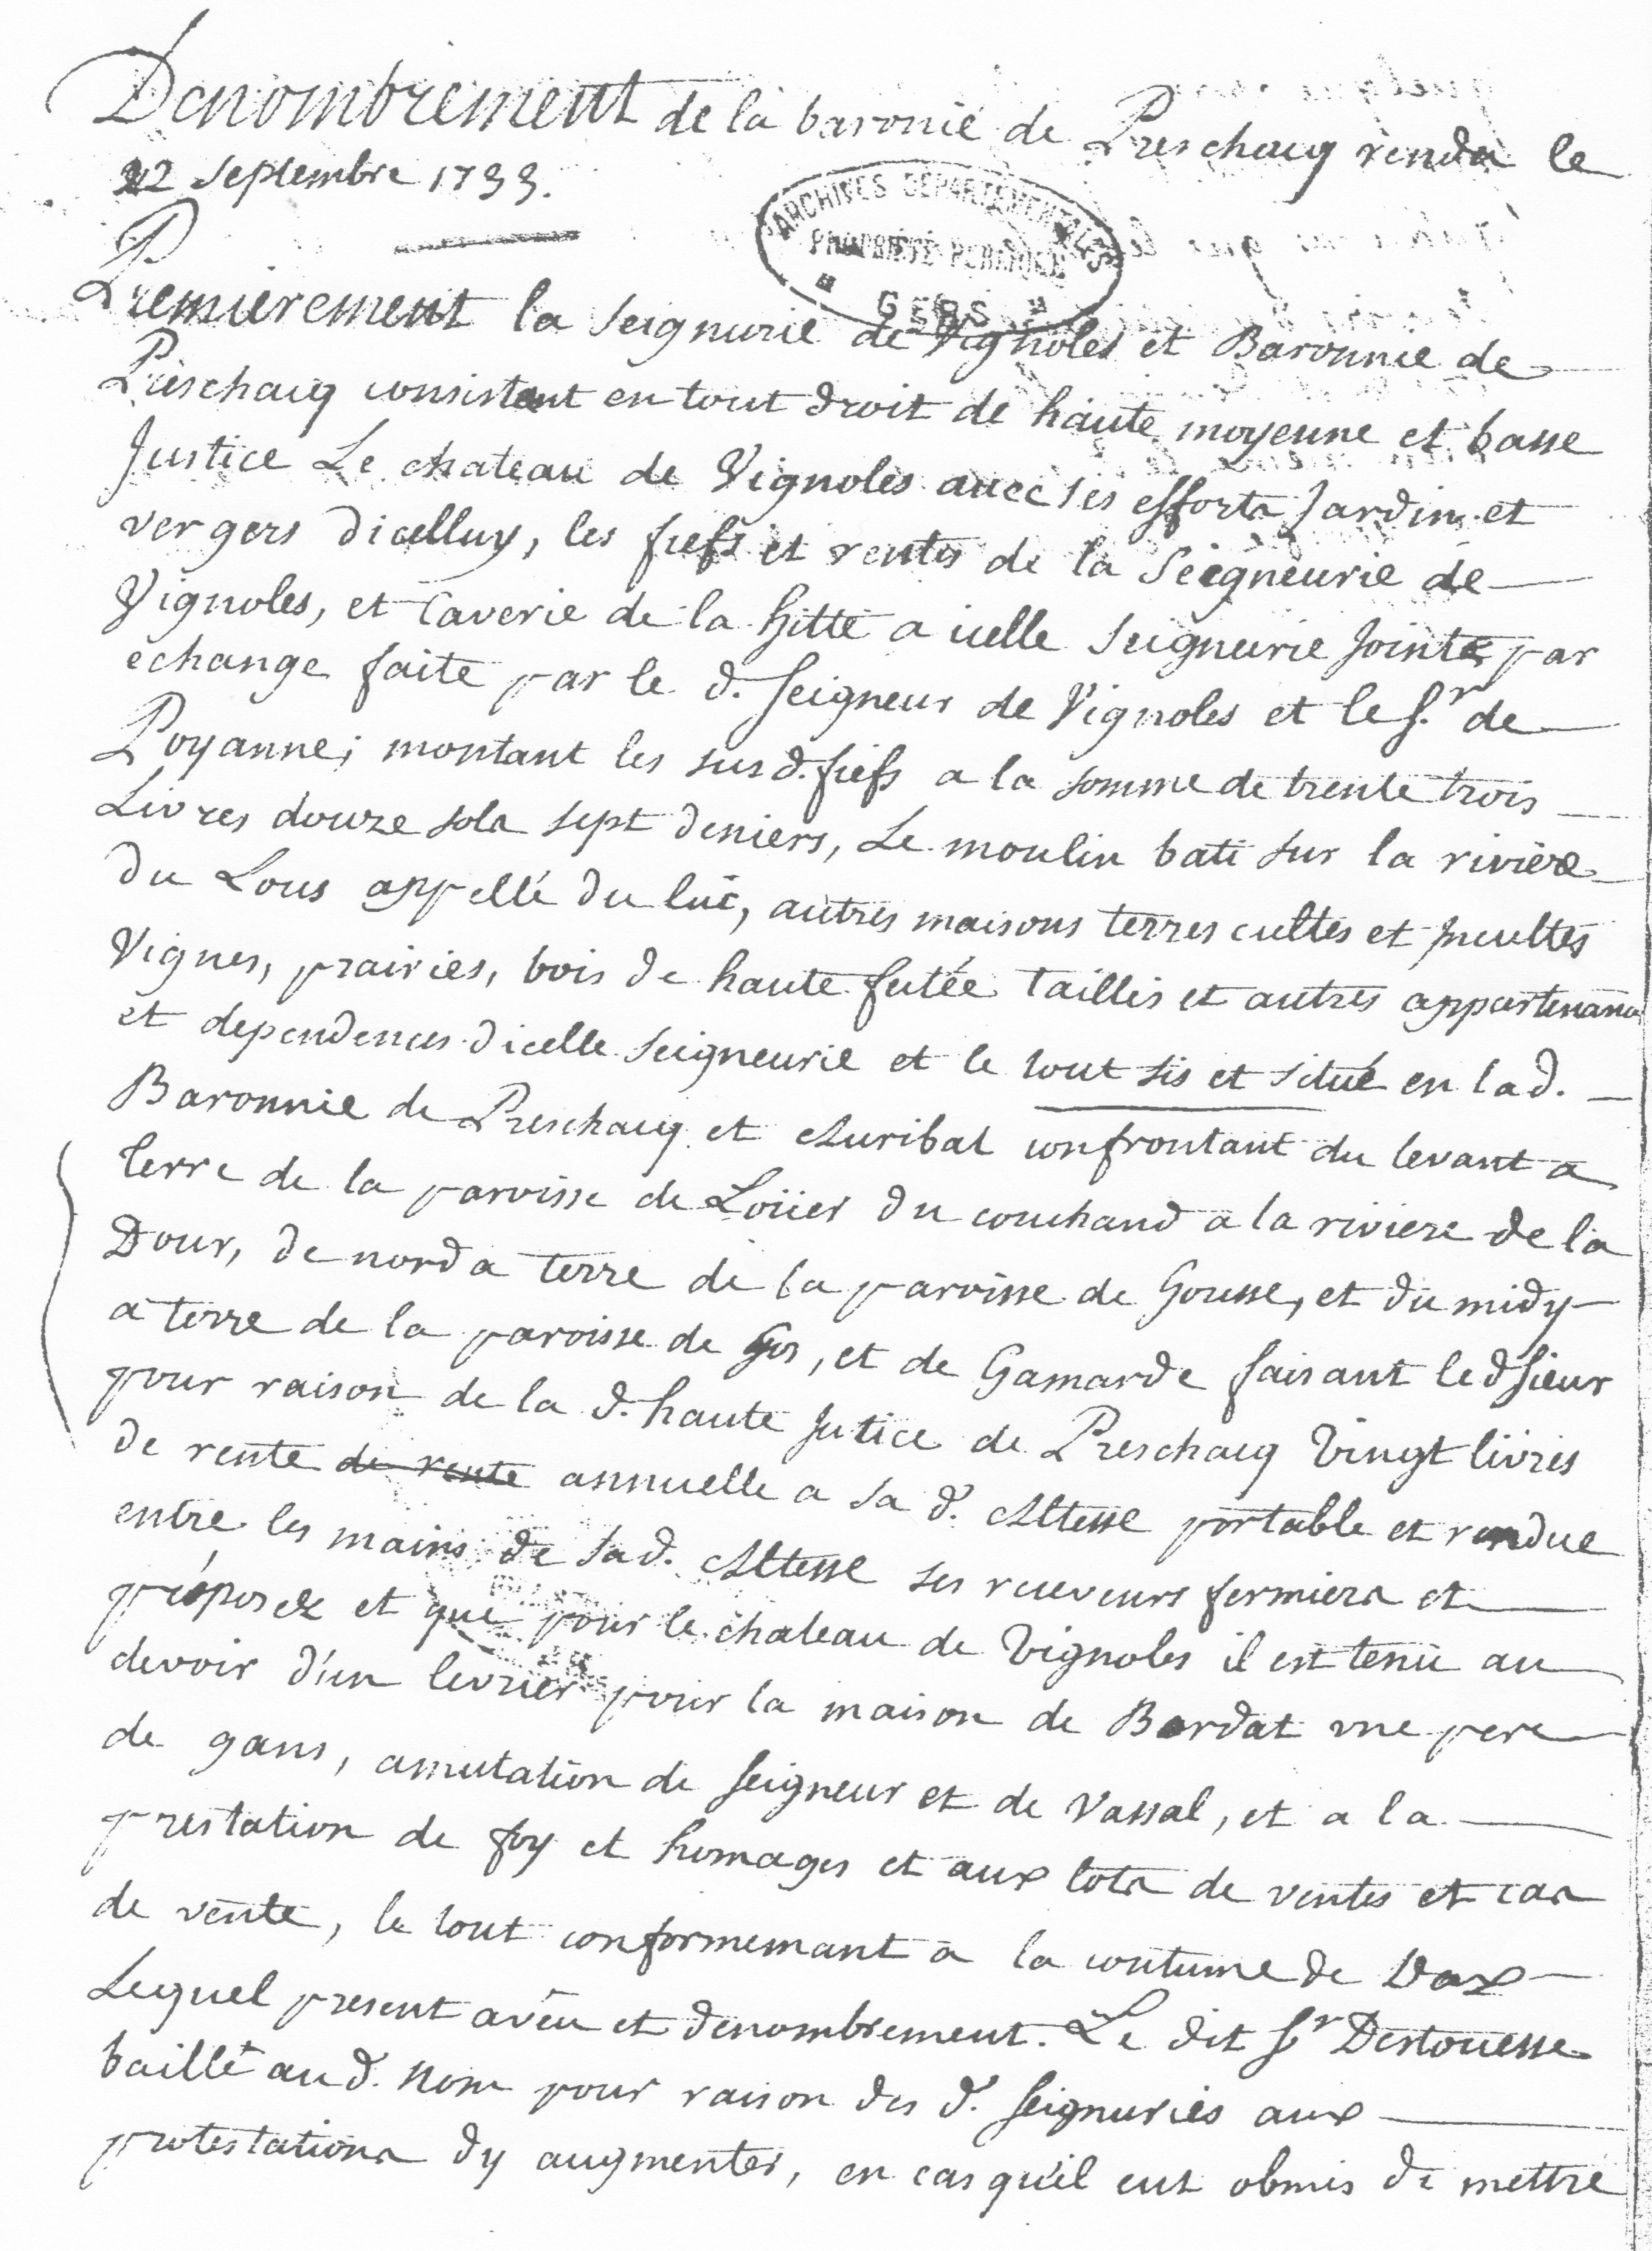 Denombrement de la baronie de Preschacq rendu le
22 Septembre 1733.
ARCHIVES DEPARTEMENTALES
PROPRIETE PUBLIQUE
GERS
Premierement la Seignurie de Vignoles et Baronnie de
Preschacq consistant en tout droit de haute moyenne et basse
Justice Le chateau de Vignoles avec ses efforts Jardin et
vergers dicelluy, les fiefs et rentes de la Seigneurie de
Vignoles, et Caverie de la hitte a icelle Seigneurie Jointe par
echange faite par le d. Seigneur de Vignoles et le S.r de
Poyanne; montant les susd. fiefs a la somme de trente trois
Livres douze sols sept deniers, Le moulin bati sur la riviere
du Lous appellé du luc, autres maisons terres cultes et incultes
Vignes, prairies, bois de haute futée Taillis et autres appartenances
et dependences dicelle Seigneurie et le tout sis et situé en lad.
Baronnie de Preschacq et Auribat confrontant du levant a
terre de la paroisse de Loüer du couchand a la riviere de la
Dour, de nord a terre de la paroisse de Gousse, et du midy
a terre de la paroisse de Gos, et de Gamarde faisant led Sieur
pour raison de la d. haute Jutice de Preschacq Vingt livres
de rente de rente annuelle a sa d. Altesse portable et rendue
entre les mains de sad. Altesse ses receveurs fermiers et
préposez et que pour le chateau de Vignoles il est tenu au
devoir d'un levrier pour la maison de Bordat une pere
de gans, amutation de Seigneur et de Vassal, et a la
prestation de foy et homages et aux lots de ventes et cas
de vente, le tout conformemant a la coutume de Dax
Lequel present aveu et denombrement. Le dit Sr Destouesse
baille au d. Nom pour raison des d. Seignuries aux
protestations dy augmenter, en cas qu'il eut obmis de mettre